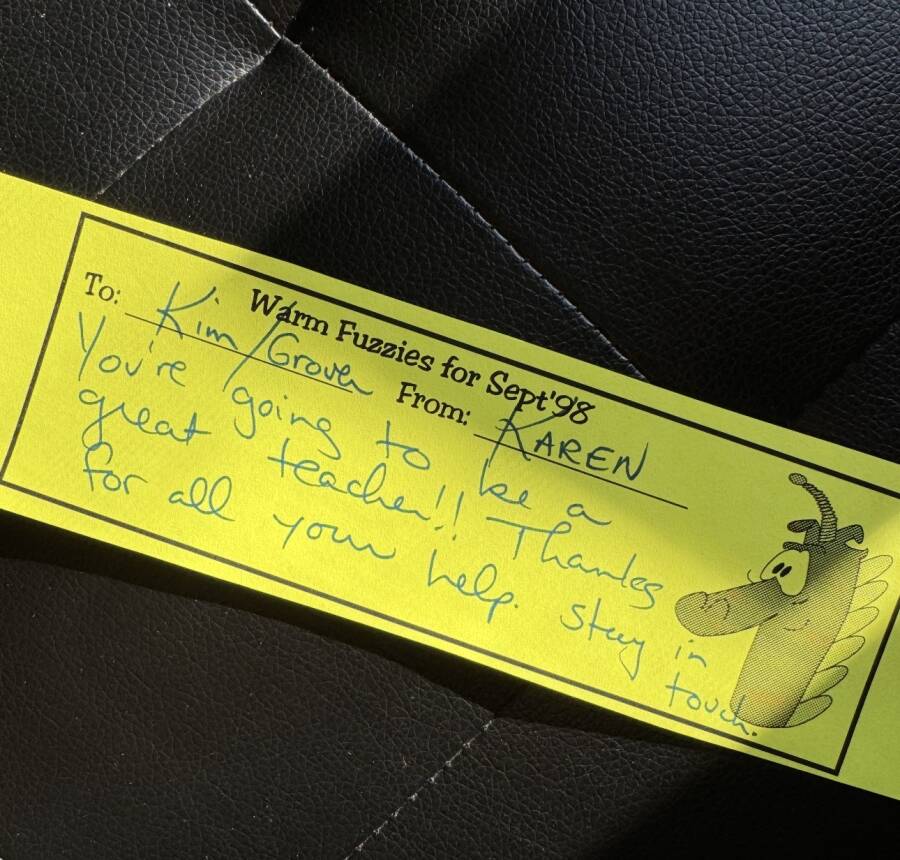 Warm Fuzzies for Sept'98
To: Kim/Grover From: KAREN
You're going to be a
great teacher!! Thanks
for all your help. Stay in
touch.